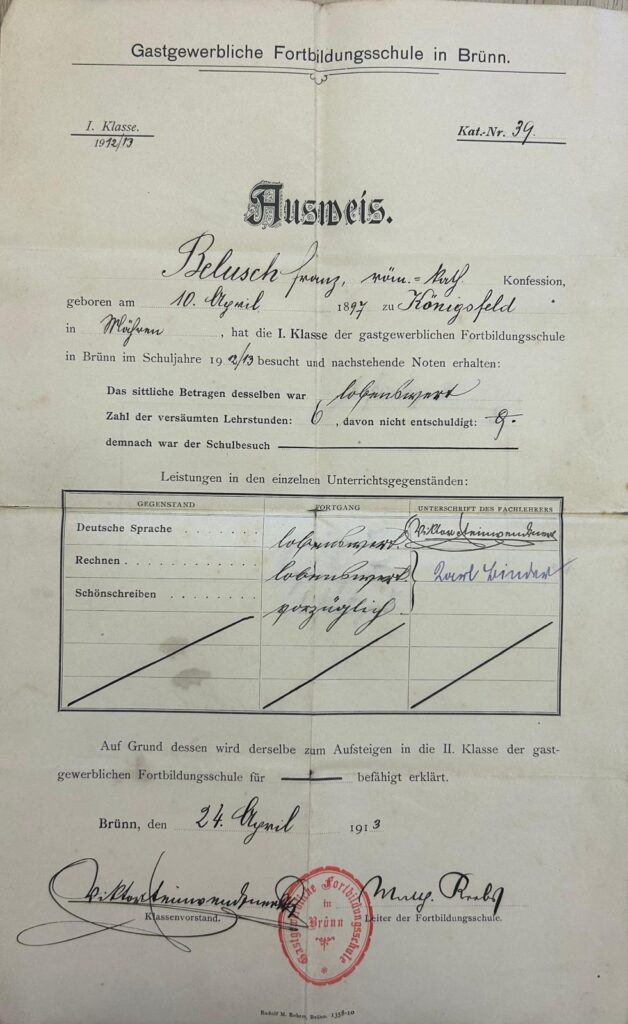 Gastgewerbliche Fortbildungsschule in Brünn.
I. Klasse.
1912/13
Kat.-Nr. 39.
Ausweis.
Belusch Franz, röm.-kath. Konfession,
geboren am 10. April 1897 zu Königsfeld
in Mähren, hat die I. Klasse der gastgewerblichen Fortbildungsschule
in Brünn im Schuljahre 1912/13 besucht und nachstehende Noten erhalten:
Das sittliche Betragen desselben war lobenswert
Zahl der versäumten Lehrstunden: 6, davon nicht entschuldigt:
demnach war der Schulbesuch
Leistungen in den einzelnen Unterrichtsgegenständen:
GEGENSTAND FORTGANG UNTERSCHRIFT DES FACHLEHRERS
Deutsche Sprache . . . . . . lobenswert. Viktor Steinwendtner
Rechnen . . . . . . . . . . lobenswert. Karl Binder
Schönschreiben . . . . . . vorzüglich.
Auf Grund dessen wird derselbe zum Aufsteigen in die II. Klasse der gast-
gewerblichen Fortbildungsschule für befähigt erklärt.
Brünn, den 24. April 1913
Viktor Steinwendtner
Klassenvorstand.
Gastgewerbliche Fortbildungsschule
in
Brünn
Math. Krebs
Leiter der Fortbildungsschule.
Rudolf M. Rohrer, Brünn. 1358-10